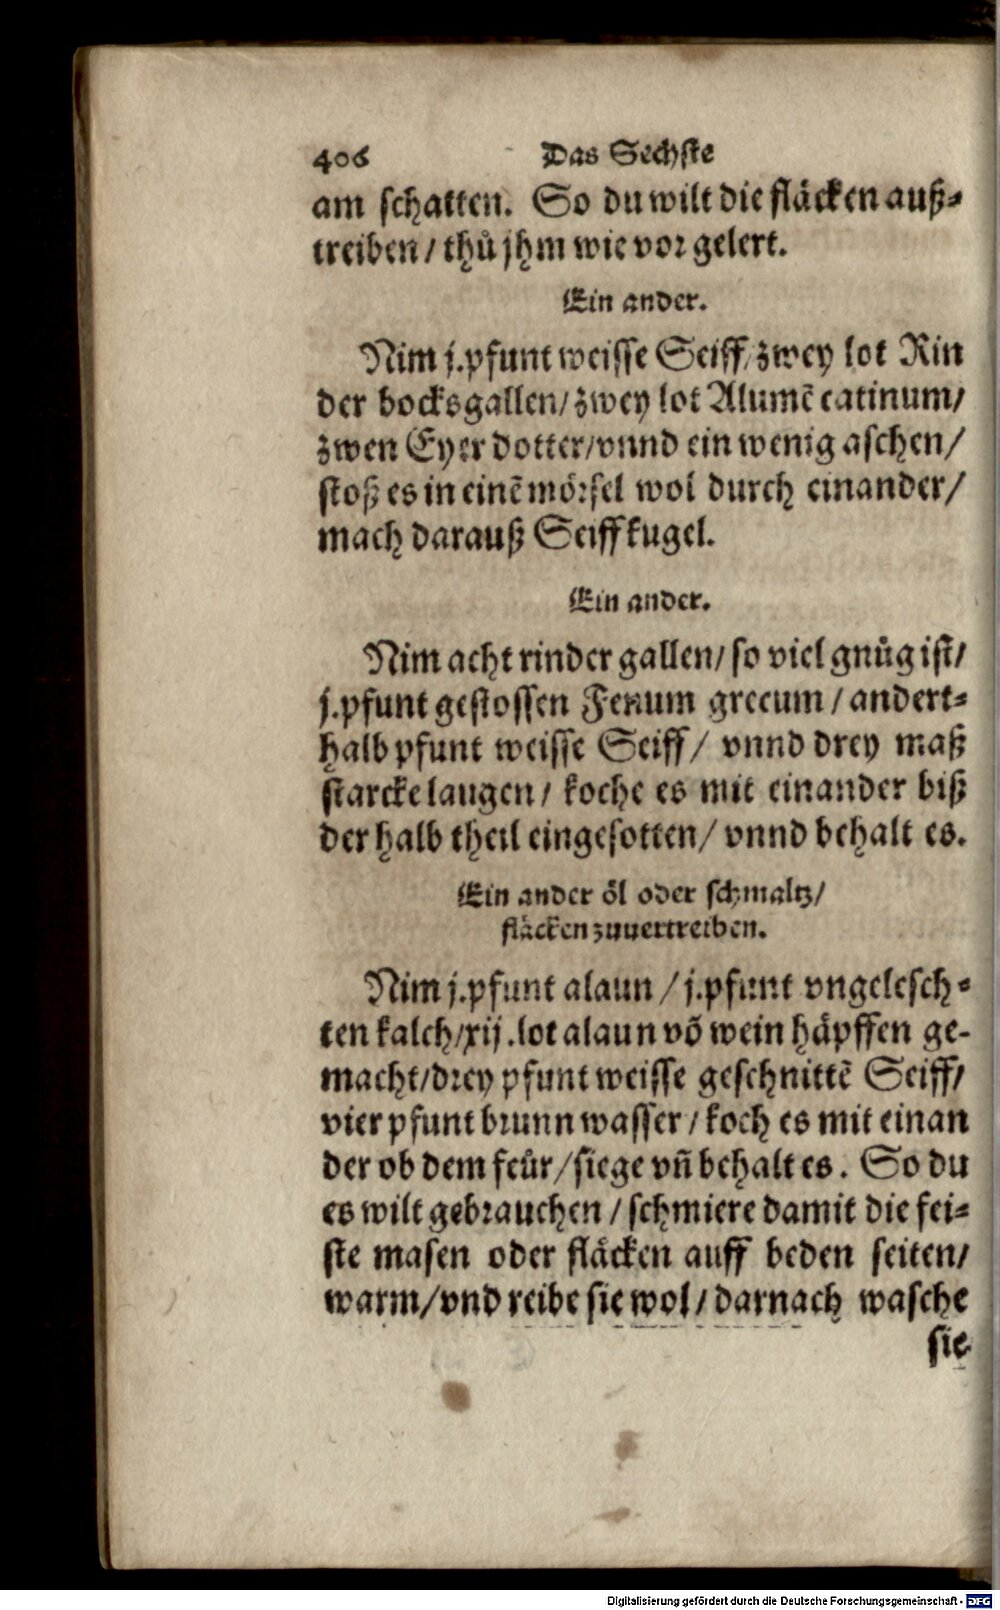 406 Das Sechste
am schatten. So du wilt die fläcken auß-
treiben / thů jhm wie vor gelert.
Ein ander.
Nim j. pfunt weisse Seiff / zwey lot Rin
der bocksgallen / zwey lot Alumē catinum /
zwen Eyer dotter / vnnd ein wenig aschen /
stoß es in einē mörsel wol durch einander /
mach darauß Seiffkugel.
Ein ander.
Nim acht rinder gallen / so viel gnůg ist /
j. pfunt gestossen Fenum grecum / andert-
halb pfunt weisse Seiff / vnnd drey maß
starcke laugen / koche es mit einander biß
der halb theil eingesotten / vnnd behalt es.
Ein ander öl oder schmaltz /
fläcken zuuertreiben.
Nim j. pfunt alaun / j. pfunt vngelesch-
ten kalch / xij. lot alaun vō wein häpffen ge-
macht / drey pfunt weisse geschnittē Seiff /
vier pfunt brunn wasser / koch es mit einan
der ob dem feůr / siege vñ behalt es. So du
es wilt gebrauchen / schmiere damit die fei-
ste masen oder fläcken auff beden seiten /
warm / vnd reibe sie wol / darnach wasche
sie
Digitalisierung gefördert durch die Deutsche Forschungsgemeinschaft - DFG